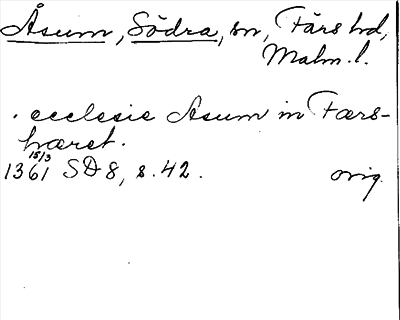 Åsum, Södra, sn, Färs hd,
Malm. l.
. ecclesie Asum in Færs-
hæret.
15/3
1361 SD 8, s. 42. orig.